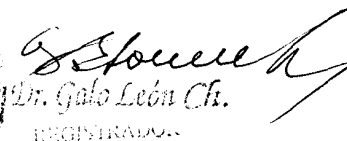 Dr. Galo León Ch.
REGISTRADOR